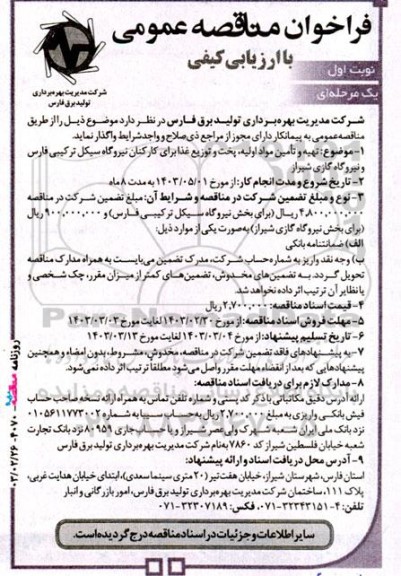 فراخوان مناقصه عمومی
با ارزیابی کیفی
نوبت اول
یک مرحله‌ای
شرکت مدیریت بهره‌برداری
تولید برق فارس
شرکت مدیریت بهره‌برداری تولید برق فارس در نظر دارد موضوع ذیل را از طریق
مناقصه عمومی به پیمانکار دارای مجوز از مراجع ذی‌صلاح و واجد شرایط واگذار نماید.
۱- موضوع: تهیه و تأمین مواد اولیه، پخت و توزیع غذا برای کارکنان نیروگاه سیکل ترکیبی فارس
و نیروگاه گازی شیراز
۲- تاریخ شروع و مدت انجام کار: از مورخ ۱۴۰۳/۰۵/۰۱ به مدت ۸ ماه
۳- نوع و مبلغ تضمین شرکت در مناقصه و شرایط آن: مبلغ تضمین شرکت در مناقصه
۴,۸۰۰,۰۰۰,۰۰۰ ریال (برای بخش نیروگاه سیکل ترکیبی فارس) و ۹۰۰,۰۰۰,۰۰۰ ریال
(برای بخش نیروگاه گازی شیراز) به‌صورت یکی از موارد ذیل:
الف) ضمانتنامه بانکی
ب) وجه نقد واریز به شماره حساب شرکت، مدرک تضمین می‌بایست به همراه مدارک مناقصه
تحویل گردد. به تضمین‌های مخدوش، تضمین‌های کمتر از میزان مقرر، چک شخصی و
یا نظایر آن ترتیب اثر داده نخواهد شد.
۴- قیمت اسناد مناقصه: ۲,۷۰۰,۰۰۰ ریال
۵- مهلت فروش اسناد مناقصه: از مورخ ۱۴۰۳/۰۲/۳۰ لغایت مورخ ۱۴۰۳/۰۳/۰۲
۶- تاریخ تسلیم پیشنهاد: از مورخ ۱۴۰۳/۰۳/۰۴ لغایت مورخ ۱۴۰۳/۰۳/۱۳
۷- به پیشنهادهای فاقد تضمین شرکت در مناقصه، مخدوش، مشروط، بدون امضاء و همچنین
پیشنهادهایی که بعد از انقضاء مهلت مقرر واصل می‌شود مطلقا ترتیب اثر داده نمی‌شود.
۸- مدارک لازم برای دریافت اسناد مناقصه:
ارائه آدرس دقیق مکاتباتی با ذکر کد پستی و شماره تلفن تماس به همراه ارائه نسخه صاحب حساب
فیش بانکی واریزی به مبلغ ۲,۷۰۰,۰۰۰ ریال به حساب سیبا به شماره ۰۱۰۵۶۱۱۷۷۳۰۰۲
نزد بانک ملی ایران شعبه شهرک ولی‌عصر شیراز و یا حساب جاری ۸۰۹۵۹ نزد بانک تجارت
شعبه خیابان فلسطین شیراز کد ۷۸۶۰ به‌نام شرکت مدیریت بهره‌برداری تولید برق فارس
۹- آدرس محل دریافت اسناد و ارائه پیشنهاد:
استان فارس، شهرستان شیراز، خیابان هفت‌تیر (۲۰ متری سینما سعدی)، ابتدای خیابان هدایت غربی،
پلاک ۱۱۱، ساختمان شرکت مدیریت بهره‌برداری تولید برق فارس، امور بازرگانی و انبار
تلفن: ۴-۳۲۳۴۳۱۵۱-۰۷۱ فکس: ۳۲۳۰۷۱۸۹-۰۷۱
سایر اطلاعات و جزئیات در اسناد مناقصه درج گردیده است.